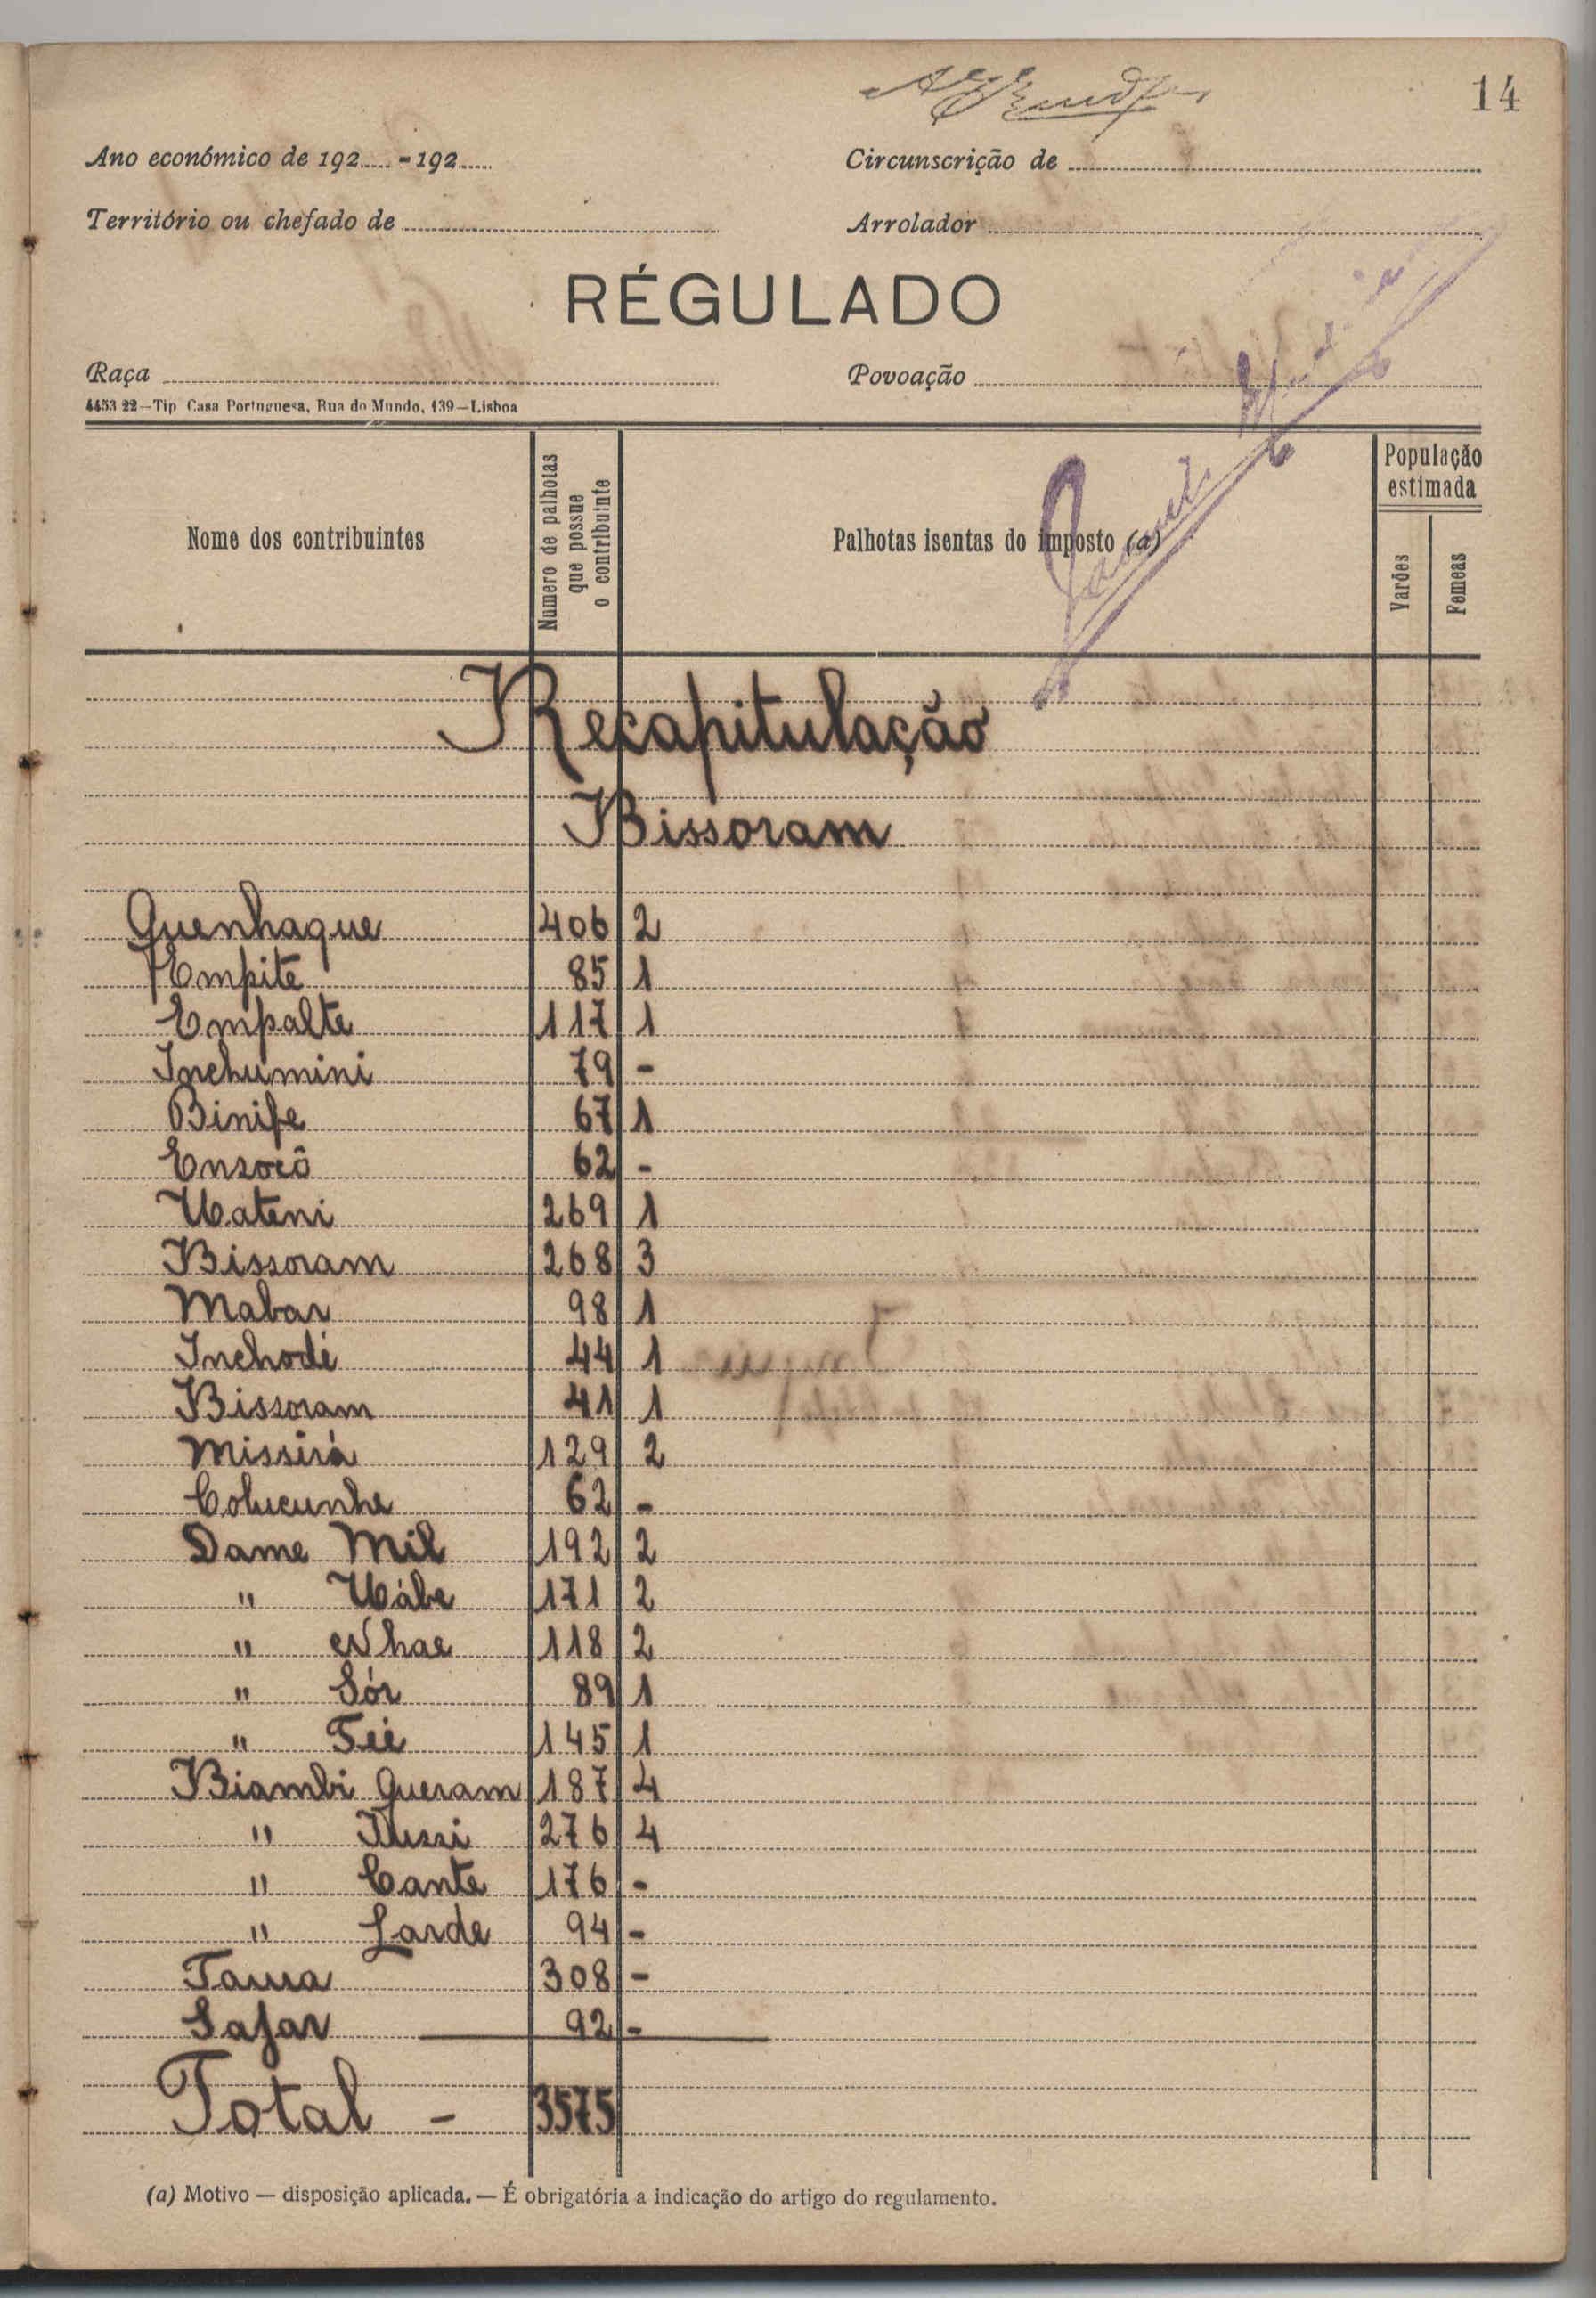 14
Ano económico de 192..... - 192.....
Circunscrição de
Território ou chefado de
Arrolador
RÉGULADO
Raça
Povoação
4453 22—Tip Casa Portuguesa, Rua do Mundo, 139—Lisboa
Nome dos contribuintes
Numero de palhotas que possue o contribuinte
Palhotas isentas do imposto (a)
População estimada
Varões
Femeas
Recapitulação
Bissoram
Quenhaque 406 2
Empite 85 1
Empalte 117 1
Inchumini 79 -
Binife 67 1
Ensocô 62 -
Uateni 269 1
Bissoram 268 3
Mabar 98 1
Inchodé 44 1
Bissoram 41 1
Missirá 129 2
Colucunhe 62 -
Dame Mil 192 2
" Uábe 171 2
" Nhae 118 2
" Sór 89 1
" Fié 145 1
Biambi Queram 187 4
" 276 4
" Cante 176 -
" Larde 94 -
Tama 308 -
Safar 92 -
Total - 3575
(a) Motivo — disposição aplicada. — É obrigatória a indicação do artigo do regulamento.